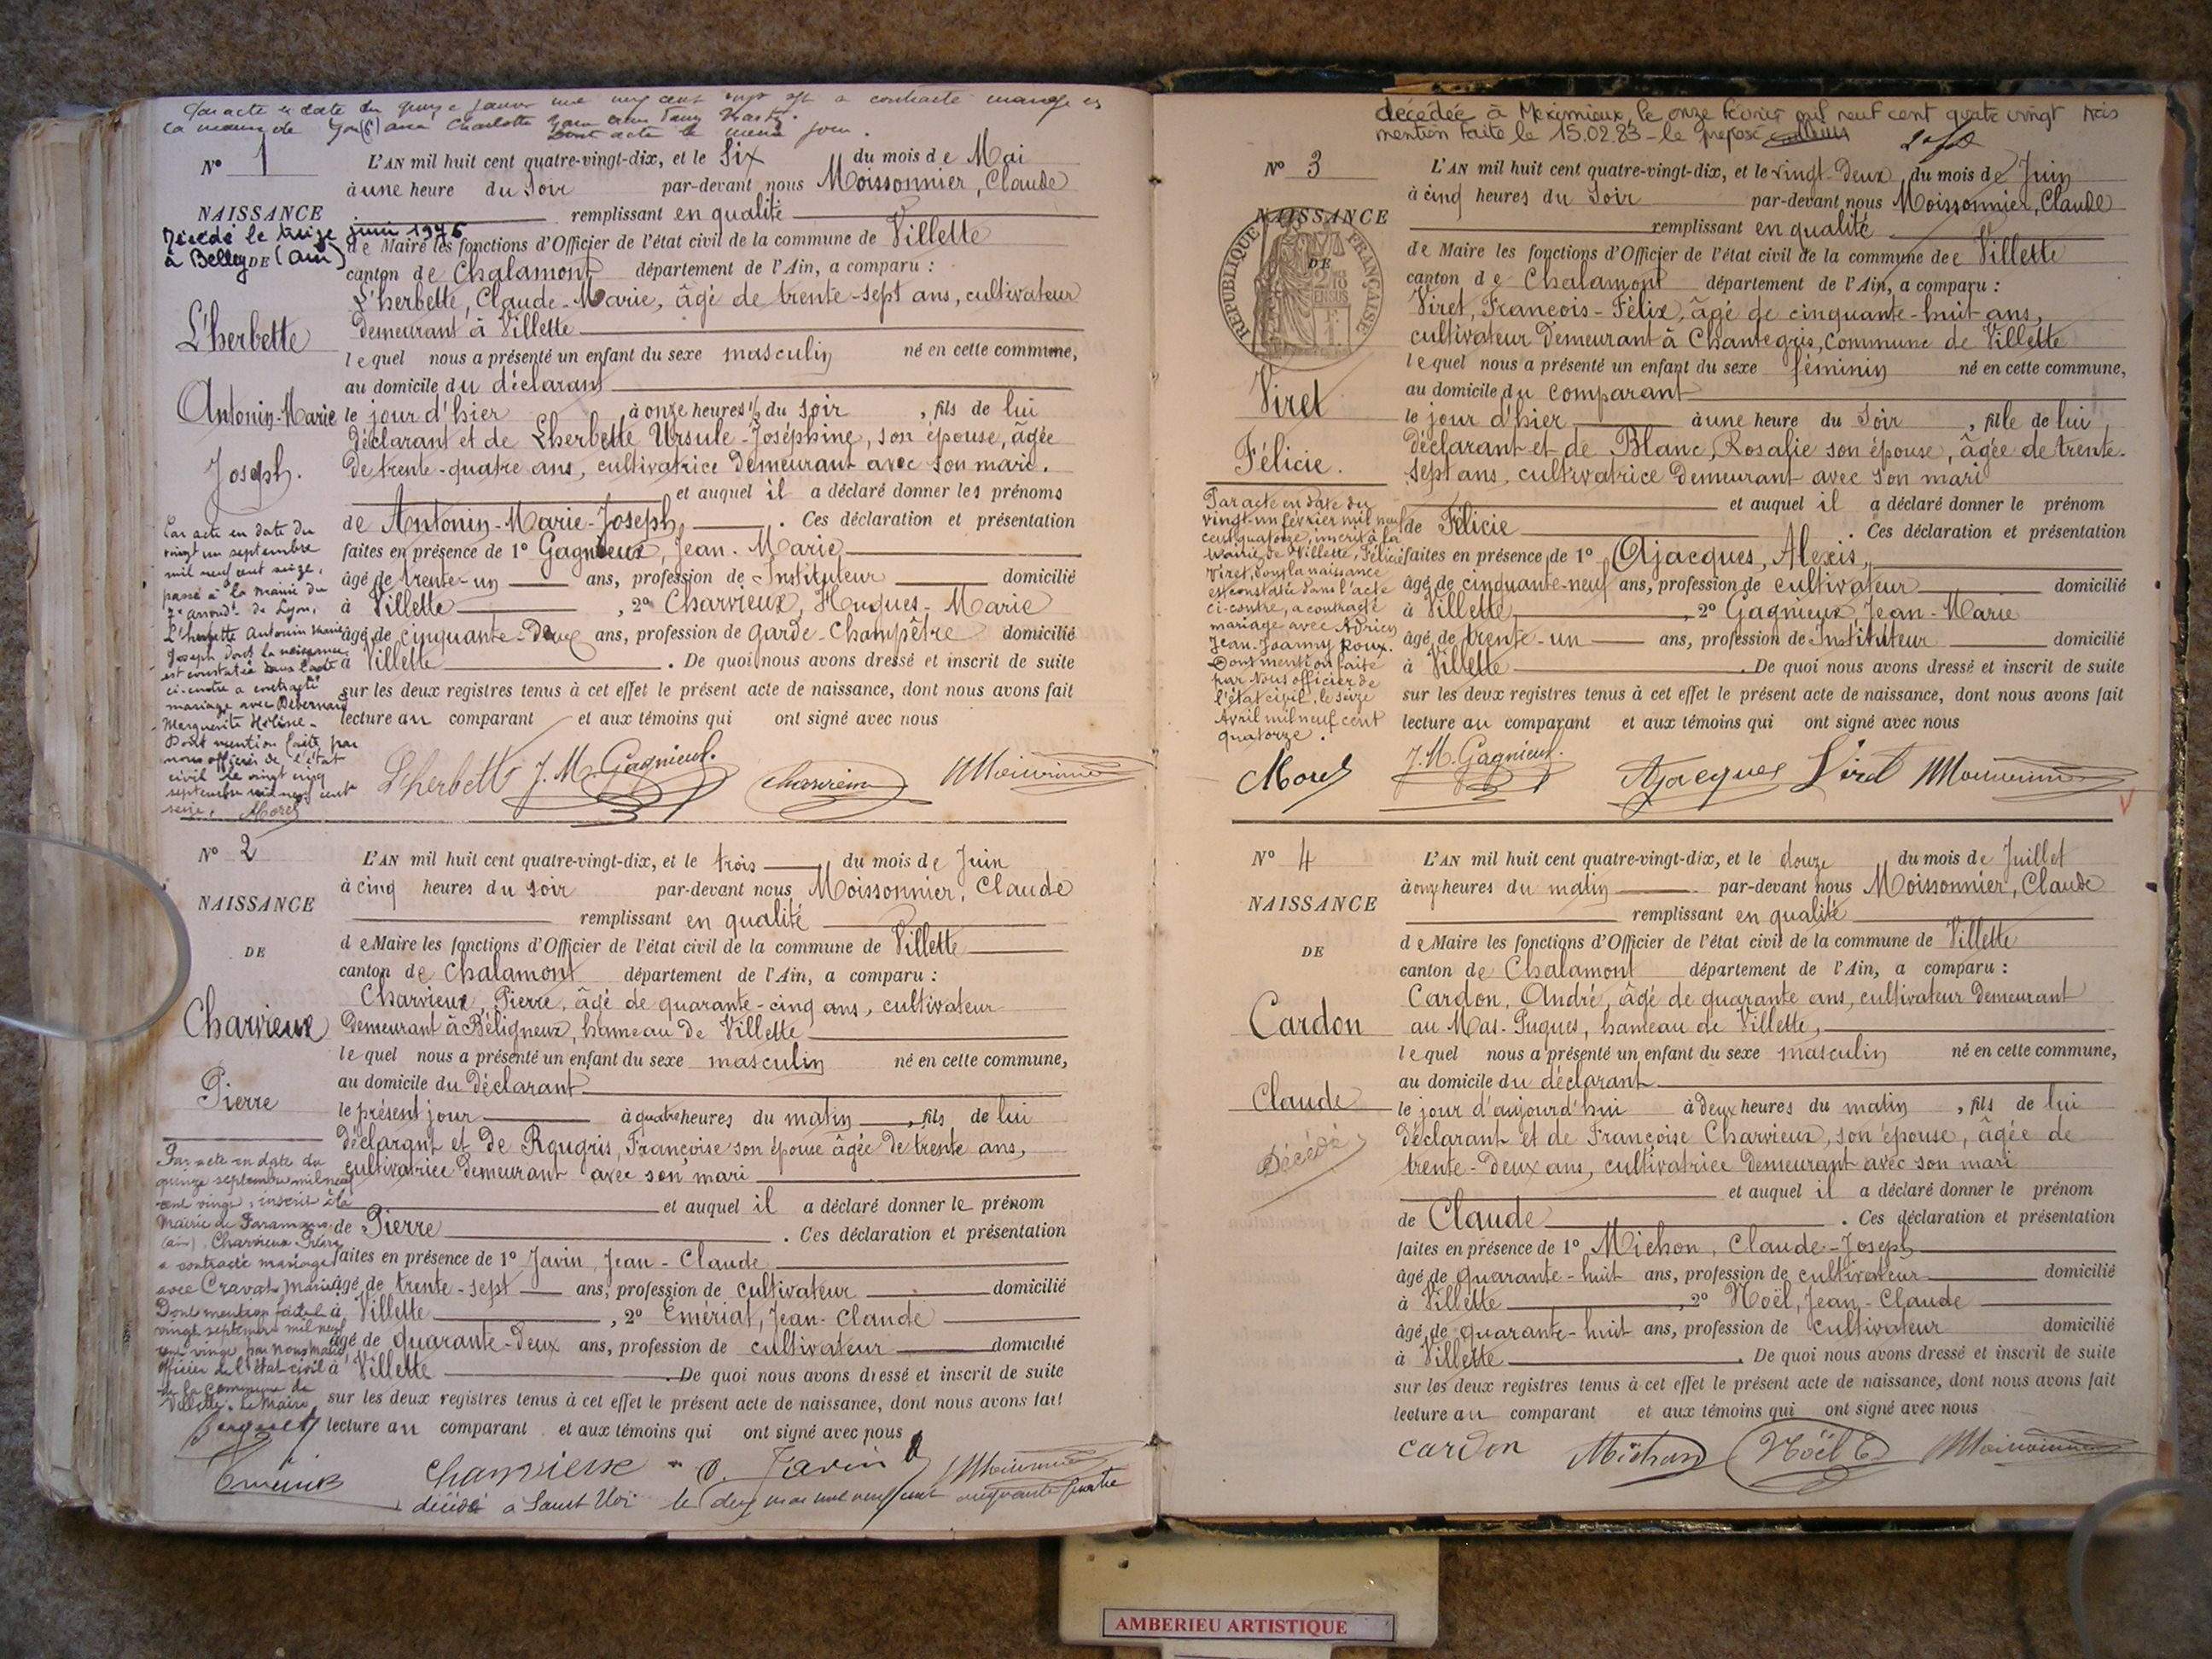 Par acte en date du
a contracté mariage
la mairie de Lyon (6)
Dont acte le même jour.
N° 1
NAISSANCE
DE
Décédé le treize juin 1976
à Belley (Ain)
L'herbette
Antonin-Marie
Joseph.
Par acte en date du
vingt un septembre
mil neuf cent seize,
passé à la mairie du
7e arrondt de Lyon,
L'herbette Antonin Marie
Joseph dont la naissance
est constatée dans l'acte
ci-contre a contracté
mariage avec
Marguerite Hélène.
Dont mention faite par
nous officier de l'état
civil le vingt cinq
septembre mil neuf cent
seize. Morel
L'AN mil huit cent quatre-vingt-dix, et le Six du mois de Mai
à une heure du Soir par-devant nous Moissonnier, Claude
remplissant en qualité
de Maire les fonctions d'Officier de l'état civil de la commune de Villette
canton de Chalamont département de l'Ain, a comparu :
L'herbette, Claude-Marie, âgé de trente-sept ans, cultivateur
demeurant à Villette
lequel nous a présenté un enfant du sexe masculin né en cette commune,
au domicile du déclarant
le jour d'hier à onze heures ½ du soir, fils de lui
déclarant et de Lherbette Ursule-Joséphine, son épouse, âgée
de trente-quatre ans, cultivatrice demeurant avec son mari.
et auquel il a déclaré donner les prénoms
de Antonin-Marie-Joseph. Ces déclaration et présentation
faites en présence de 1° Gagnieux, Jean-Marie
âgé de trente-un ans, profession de Instituteur domicilié
à Villette, 2° Charvieux, Hugues-Marie
âgé de cinquante-deux ans, profession de garde-champêtre domicilié
à Villette. De quoi nous avons dressé et inscrit de suite
sur les deux registres tenus à cet effet le présent acte de naissance, dont nous avons fait
lecture au comparant et aux témoins qui ont signé avec nous
Lherbette J.M. Gagnieux. Charvieux Moissonnier
N° 2
NAISSANCE
DE
Charvieux
Pierre
Par acte en date du
quinze septembre mil neuf
cent vingt, inscrit à la
Mairie de Faramans
(Ain), Charvieux Pierre
a contracté mariage
avec Cravat Marie
Dont mention faite le
vingt septembre mil neuf
cent vingt par Nous Maire
officier de l'état civil
de la commune de
Villette. Le Maire
L'AN mil huit cent quatre-vingt-dix, et le trois du mois de Juin
à cinq heures du soir par-devant nous Moissonnier, Claude
remplissant en qualité
de Maire les fonctions d'Officier de l'état civil de la commune de Villette
canton de Chalamont département de l'Ain, a comparu :
Charvieux, Pierre, âgé de quarante-cinq ans, cultivateur
demeurant à Béligneux, hameau de Villette
lequel nous a présenté un enfant du sexe masculin né en cette commune,
au domicile du déclarant
le présent jour à quatre heures du matin, fils de lui
déclarant et de Rougris, Françoise son épouse âgée de trente ans,
cultivatrice demeurant avec son mari
et auquel il a déclaré donner le prénom
de Pierre. Ces déclaration et présentation
faites en présence de 1° Javin, Jean-Claude
âgé de trente-sept ans, profession de cultivateur domicilié
à Villette, 2° Emériat, Jean-Claude
âgé de quarante-deux ans, profession de cultivateur domicilié
à Villette. De quoi nous avons dressé et inscrit de suite
sur les deux registres tenus à cet effet le présent acte de naissance, dont nous avons fait
lecture au comparant et aux témoins qui ont signé avec nous
Charvieux Javin Moissonnier
décédé à Saint le deux mai mil neuf cent cinquante quatre
décédée à Meximieux, le onze février mil neuf cent quatre vingt trois
mention faite le 15.02.83 - le préposé
N° 3
NAISSANCE
DE
REPUBLIQUE FRANÇAISE
Viret
Félicie.
Par acte en date du
vingt-un février mil neuf
cent quatorze, inscrit à la
Mairie de Villette, Félicie
Viret, dont la naissance
est constatée dans l'acte
ci-contre, a contracté
mariage avec Adrien
Jean-Joanny Roux.
Dont mention faite
par Nous officier de
l'état civil, le seize
Avril mil neuf cent
quatorze.
L'AN mil huit cent quatre-vingt-dix, et le vingt-deux du mois de Juin
à cinq heures du soir par-devant nous Moissonnier, Claude
remplissant en qualité
de Maire les fonctions d'Officier de l'état civil de la commune de Villette
canton de Chalamont département de l'Ain, a comparu :
Viret, François-Félix, âgé de cinquante-huit ans,
cultivateur demeurant à Chantegris, Commune de Villette
lequel nous a présenté un enfant du sexe féminin né en cette commune,
au domicile du comparant
le jour d'hier à une heure du soir, fille de lui
déclarant et de Blanc, Rosalie son épouse, âgée de trente-
sept ans, cultivatrice demeurant avec son mari
et auquel il a déclaré donner le prénom
de Félicie. Ces déclaration et présentation
faites en présence de 1° Ajacques, Alexis,
âgé de cinquante-neuf ans, profession de cultivateur domicilié
à Villette, 2° Gagnieux, Jean-Marie
âgé de trente-un ans, profession de Instituteur domicilié
à Villette. De quoi nous avons dressé et inscrit de suite
sur les deux registres tenus à cet effet le présent acte de naissance, dont nous avons fait
lecture au comparant et aux témoins qui ont signé avec nous
Morel J.M. Gagnieux. Ajacques Viret Moissonnier
N° 4
NAISSANCE
DE
Cardon
Claude
Décédé
L'AN mil huit cent quatre-vingt-dix, et le douze du mois de Juillet
à onze heures du matin par-devant nous Moissonnier, Claude
remplissant en qualité
de Maire les fonctions d'Officier de l'état civil de la commune de Villette
canton de Chalamont département de l'Ain, a comparu :
Cardon, André, âgé de quarante ans, cultivateur demeurant
au Mas-Pugues, hameau de Villette,
lequel nous a présenté un enfant du sexe masculin né en cette commune,
au domicile du déclarant
le jour d'aujourd'hui à deux heures du matin, fils de lui
déclarant et de Françoise Charvieux, son épouse, âgée de
trente-deux ans, cultivatrice demeurant avec son mari
et auquel il a déclaré donner le prénom
de Claude. Ces déclaration et présentation
faites en présence de 1° Michon, Claude-Joseph
âgé de quarante-huit ans, profession de cultivateur domicilié
à Villette, 2° Noël, Jean-Claude
âgé de quarante-huit ans, profession de cultivateur domicilié
à Villette. De quoi nous avons dressé et inscrit de suite
sur les deux registres tenus à cet effet le présent acte de naissance, dont nous avons fait
lecture au comparant et aux témoins qui ont signé avec nous
cardon Michon Noël C Moissonnier
AMBERIEU ARTISTIQUE